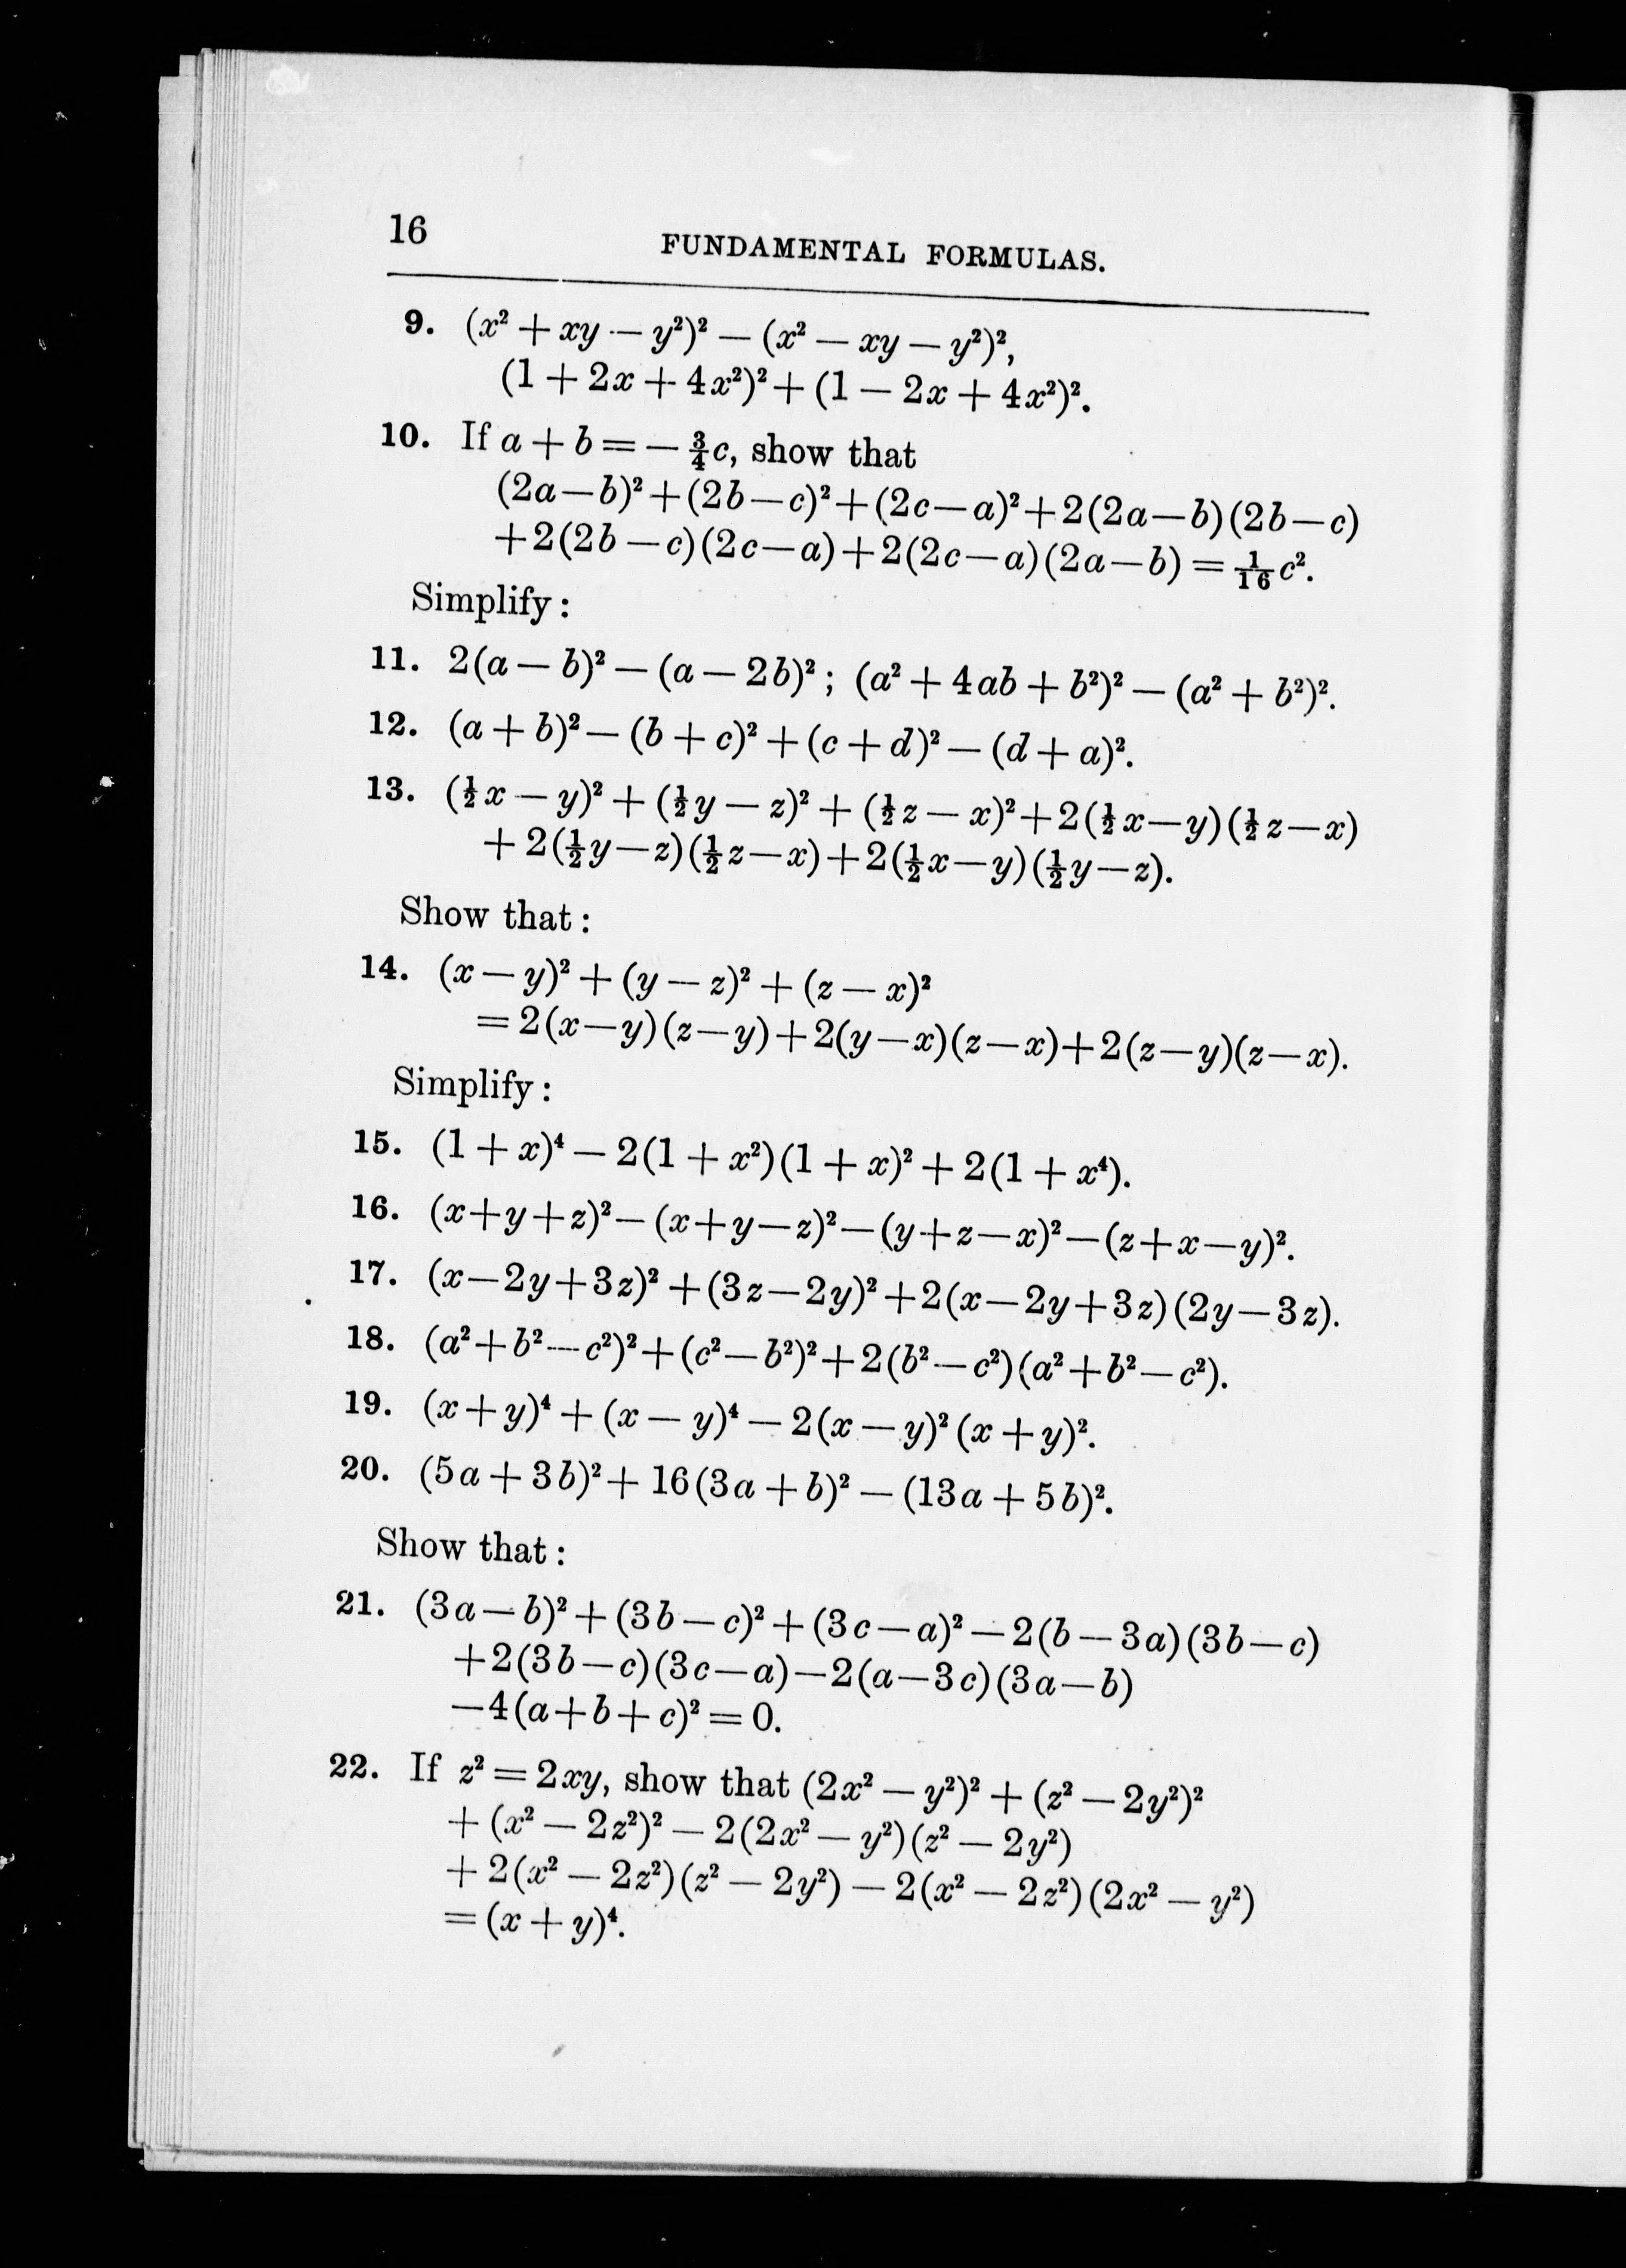 16
FUNDAMENTAL FORMULAS.
9. (x² + xy — y²)² — (x² — xy — y²)²,
(1 + 2x + 4x²)² + (1 — 2x + 4x²)².
10. If a + b = — ¾c, show that
(2a—b)²+(2b—c)²+(2c—a)²+2(2a—b)(2b—c)
+2(2b—c)(2c—a)+2(2c—a)(2a—b) = 1/16 c².
Simplify:
11. 2(a — b)² — (a — 2b)²; (a² + 4ab + b²)² — (a² + b²)².
12. (a + b)² — (b + c)² + (c + d)² — (d + a)².
13. (½x — y)² + (½y — z)² + (½z — x)²+2(½x—y)(½z—x)
+ 2(½y—z)(½z—x)+2(½x—y)(½y—z).
Show that:
14. (x — y)² + (y — z)² + (z — x)²
=2(x—y)(z—y)+2(y—x)(z—x)+2(z—y)(z—x).
Simplify:
15. (1 + x)⁴ — 2(1 + x²)(1 + x)² + 2(1 + x⁴).
16. (x+y+z)²—(x+y—z)²—(y+z—x)²—(z+x—y)².
17. (x—2y+3z)²+(3z—2y)²+2(x—2y+3z)(2y—3z).
18. (a²+b²—c²)²+(c²—b²)²+2(b²—c²)(a²+b²—c²).
19. (x + y)⁴ + (x — y)⁴ — 2(x — y)² (x + y)².
20. (5a + 3b)² + 16(3a + b)² — (13a + 5b)².
Show that:
21. (3a—b)²+(3b—c)²+(3c—a)²—2(b—3a)(3b—c)
+2(3b—c)(3c—a)—2(a—3c)(3a—b)
—4(a+b+c)²=0.
22. If z² = 2xy, show that (2x² — y²)² + (z² — 2y²)²
+ (x² — 2z²)² — 2(2x² — y²)(z² — 2y²)
+ 2(x² — 2z²)(z² — 2y²) — 2(x² — 2z²)(2x² — y²)
= (x + y)⁴.